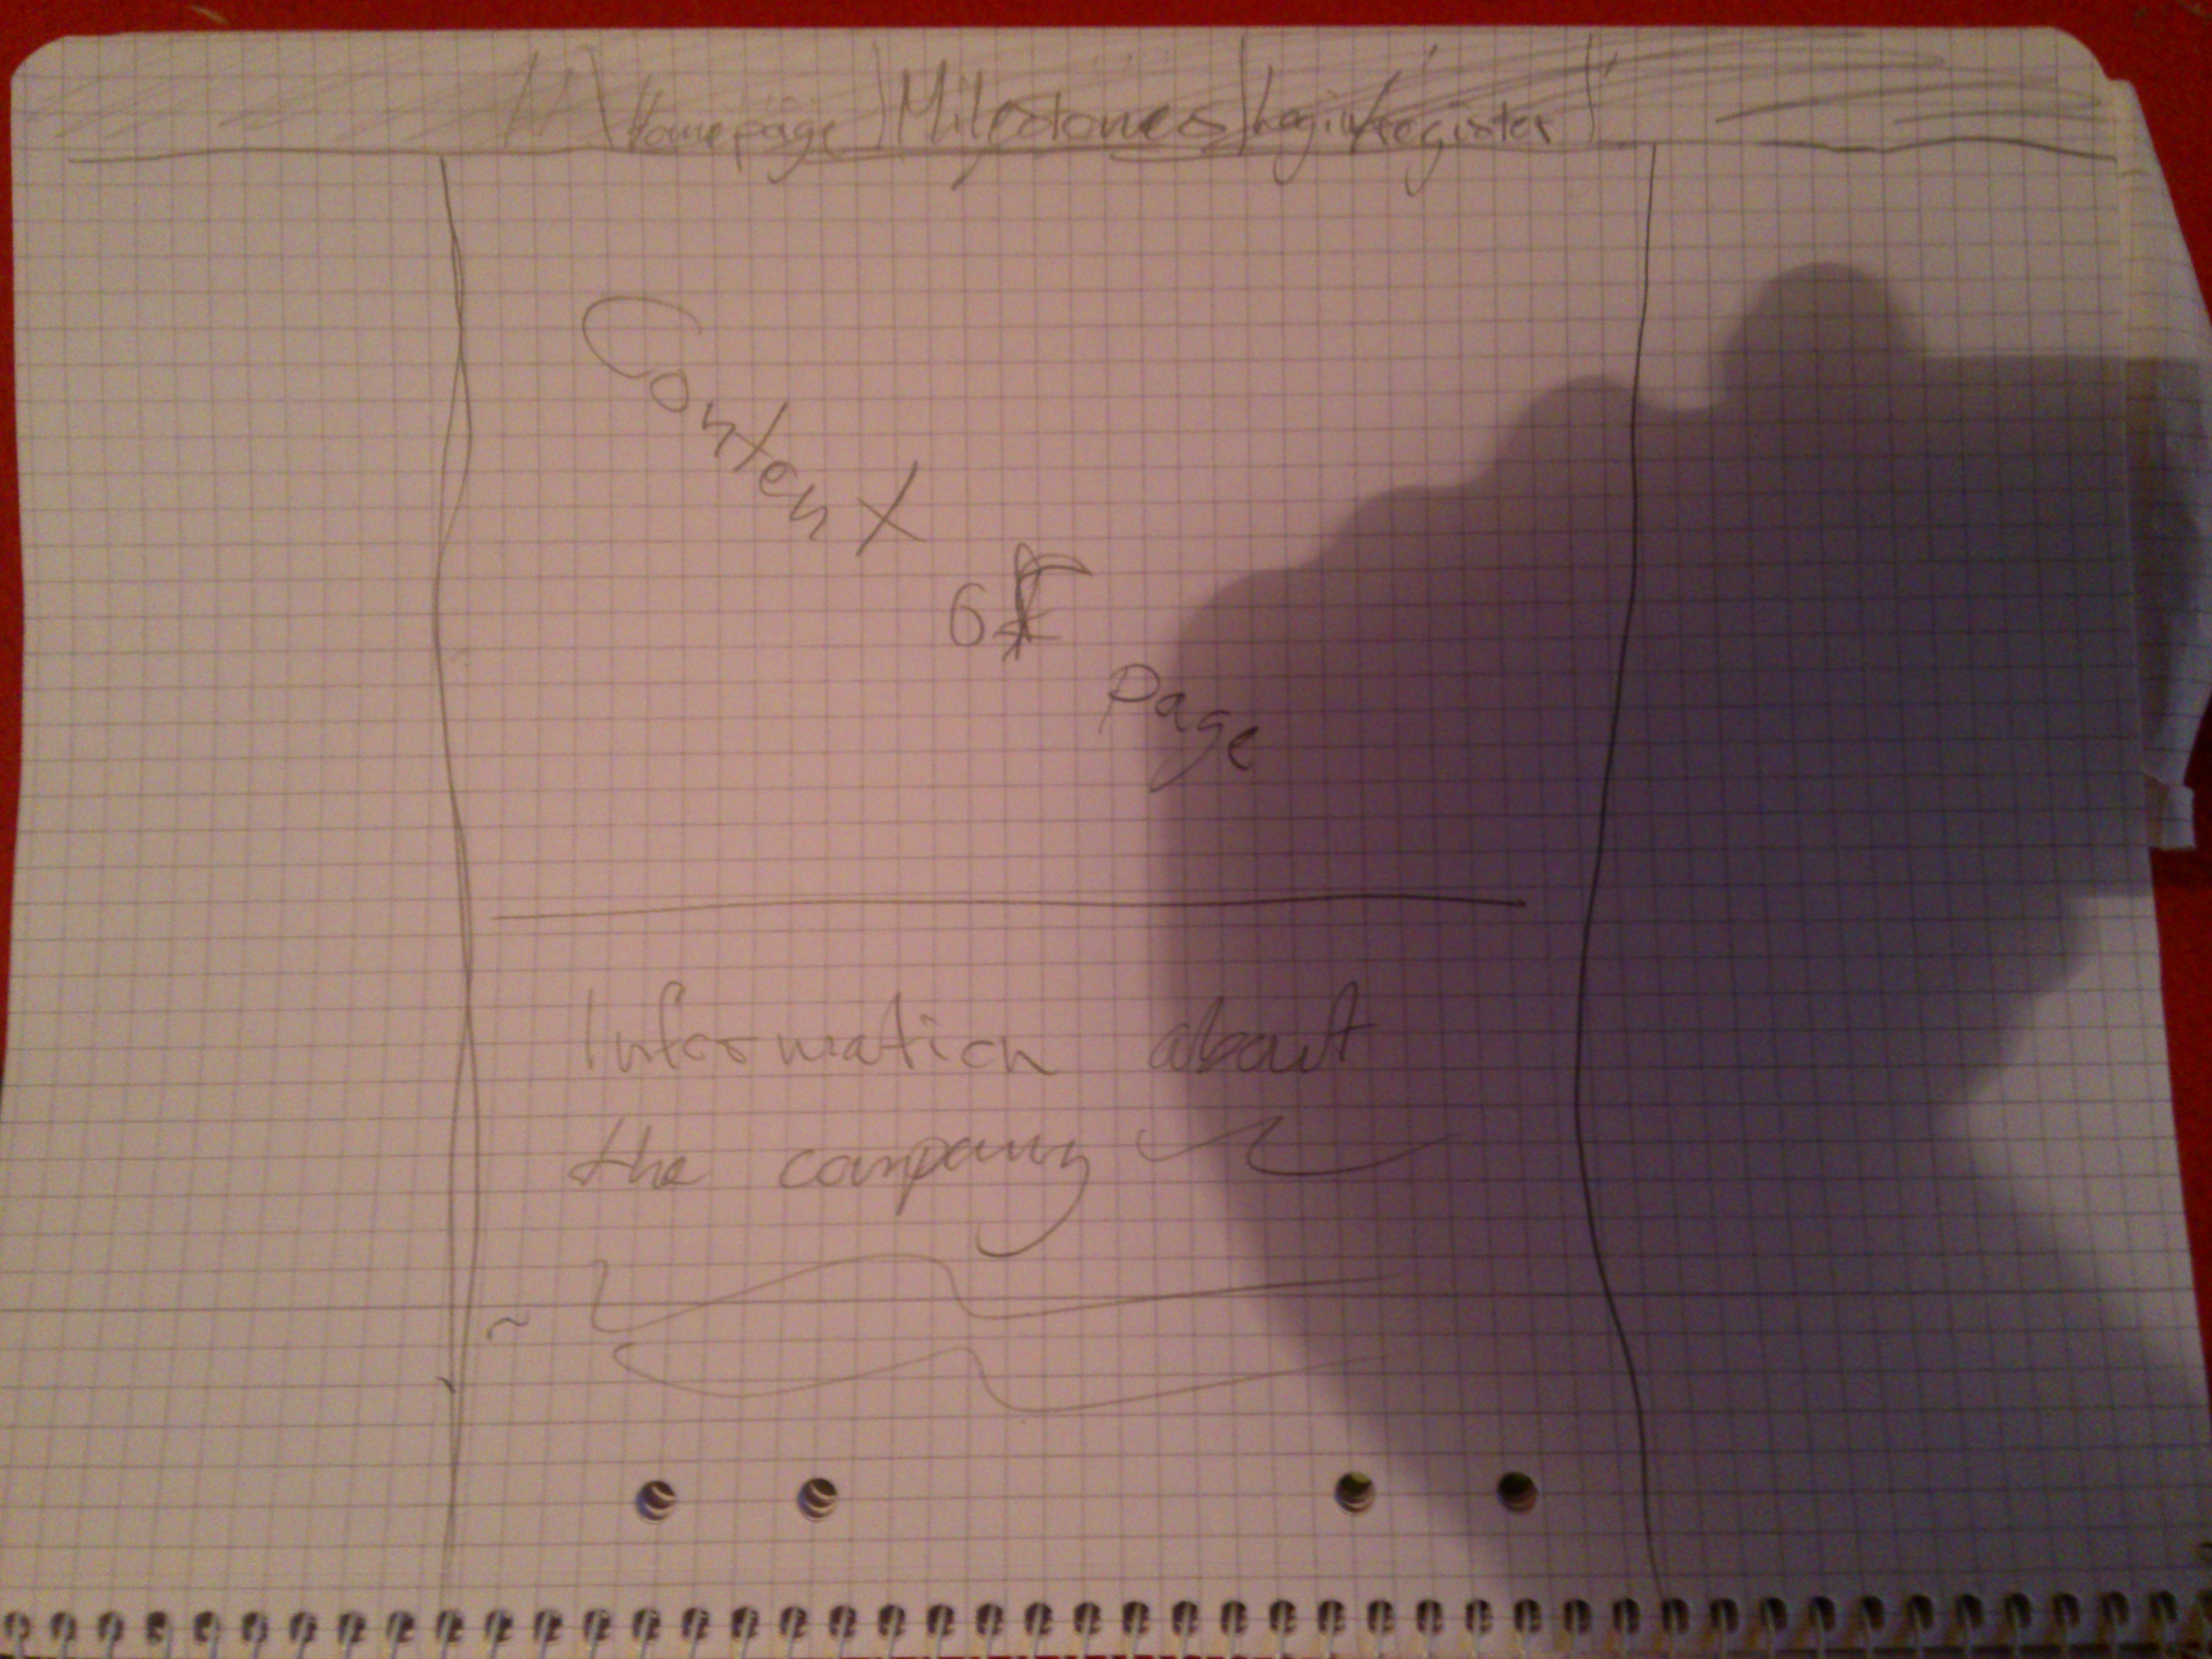 Homepage | Milestones | Login/register
Content
of
page
Information about
the company